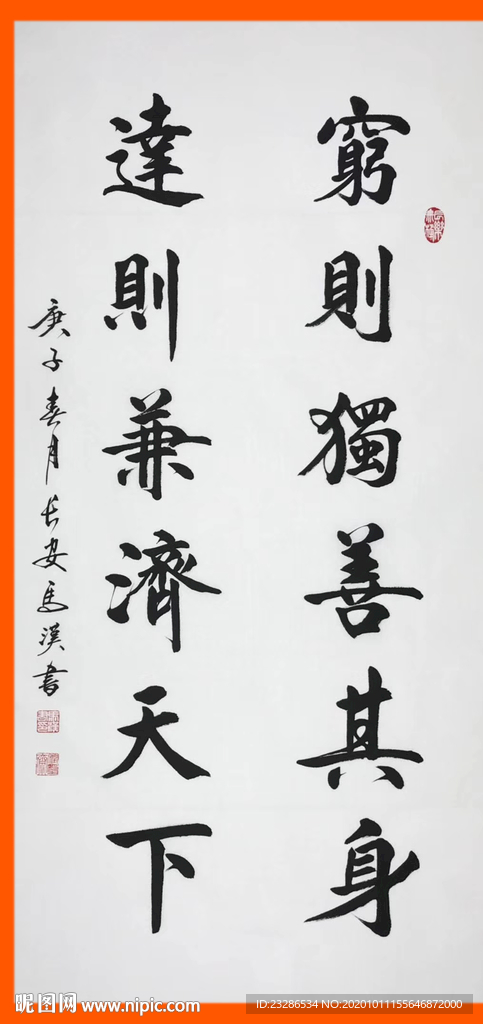 窮則獨善其身
達則兼濟天下
庚子春月長安馬漢書
昵图网 www.nipic.com
ID:23286534 NO:20201011155646872000